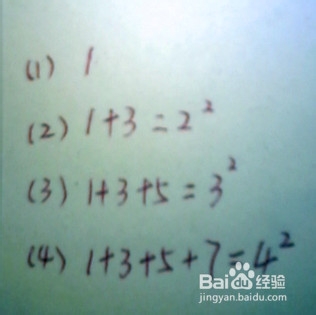 (1) 1
(2) 1+3=2²
(3) 1+3+5=3²
(4) 1+3+5+7=4²
Baidu经验
jingyan.baidu.com